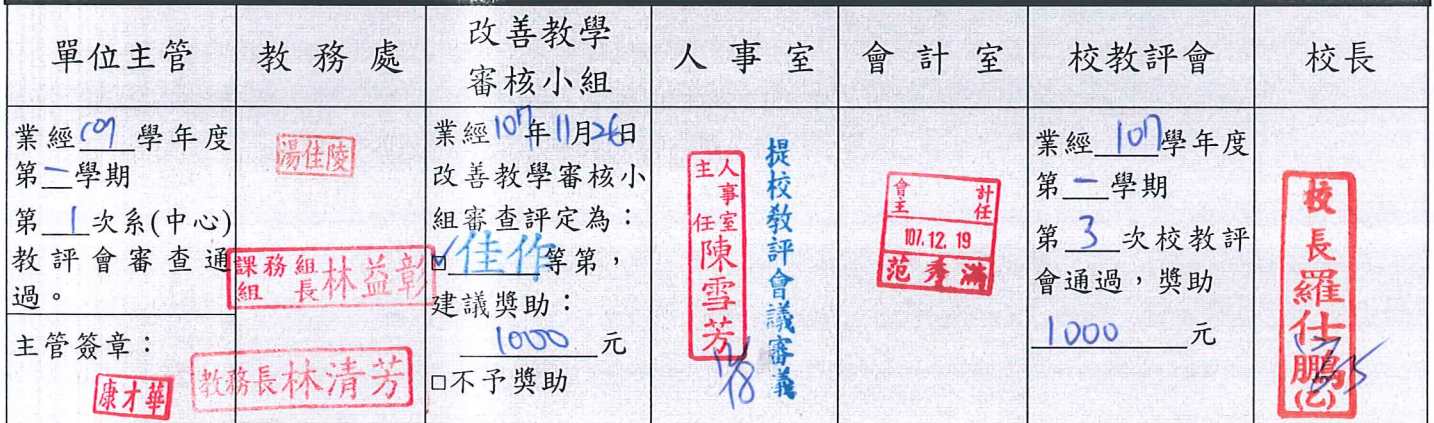 單位主管
教務處
改善教學
審核小組
人事室
會計室
校教評會
校長
業經107學年度
第一學期
第1次系(中心)
教評會審查通
過。
主管簽章：
康才華
湯佳陵
課務組
組長林益彰
教務長林清芳
業經107年11月26日
改善教學審核小
組審查評定為：
☑佳作等第，
建議獎助：
1000元
□不予獎助
人事室
主任陳雪芳
12/18
提校教評會議審議
會計
主任
107.12.19
范秀滿
業經107學年度
第一學期
第3次校教評
會通過，獎助
1000元
校長羅仕鵬
(乙)